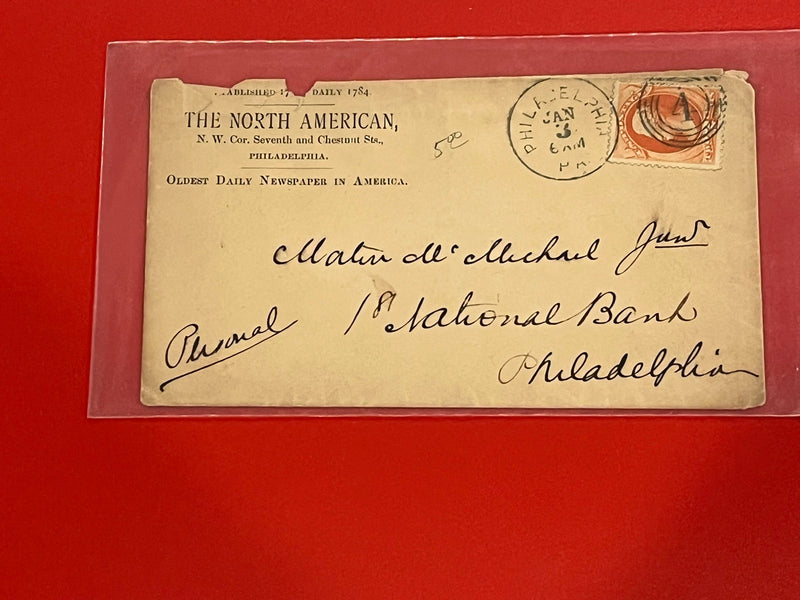 DAILY 1784.
THE NORTH AMERICAN,
N. W. Cor. Seventh and Chestnut Sts.,
PHILADELPHIA.
OLDEST DAILY NEWSPAPER IN AMERICA.
5⁰⁰
PHILADELPHIA
JAN
3
6 AM
PA.
4
Morton Mc Michael Junr
1st National Bank
Philadelphia
Personal